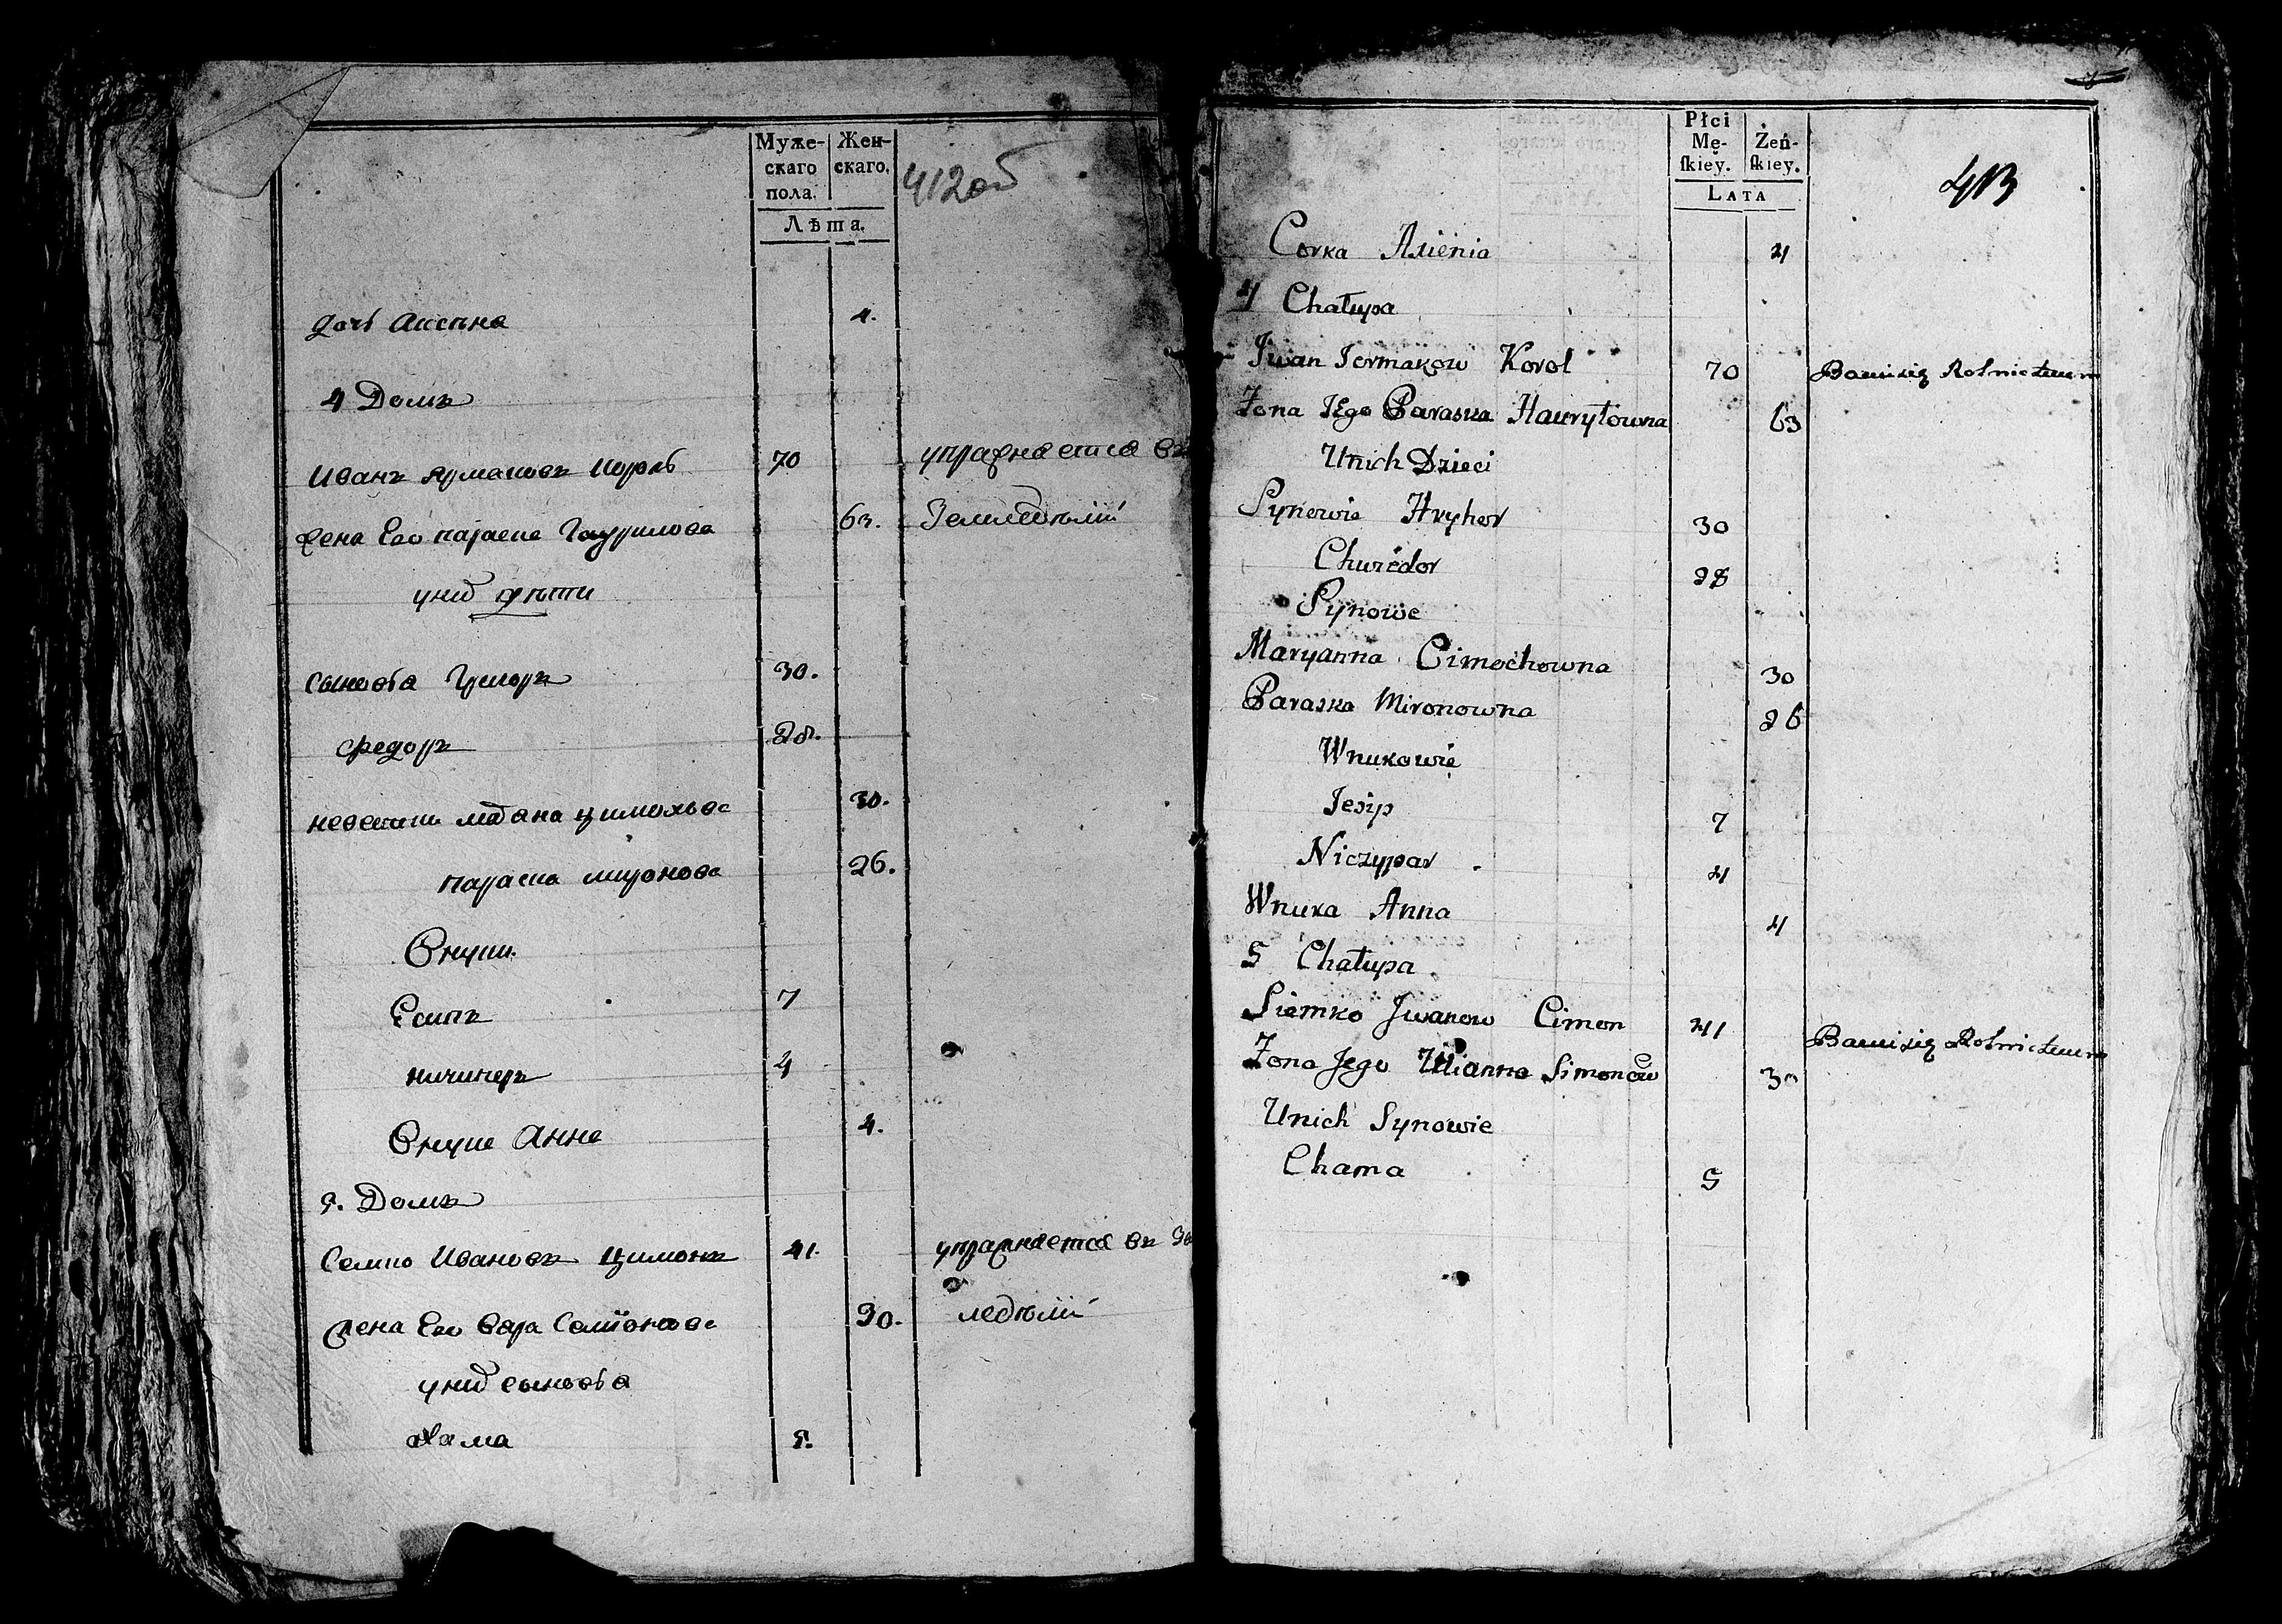 Муже-
скаго
пола.
Жен-
скаго.
Лѣта.
412об
дочь Аксена 4.
4 Домъ
Иванъ Ярмаковъ Король 70 упражняется въ
жена Его параска Гаурилова 63. Земледѣлiи
униx дѣти
сыновья Григоръ 30.
Федоръ 28.
невестки Марана цимохова 30.
параска миронова 26.
Внуки.
Есипъ 7
ничипер 4
Внука Анна 4.
5. Домъ
Семко Ивановъ Цимонъ 41. упражняется въ Зе
жена Его Симонова 30. ледѣлiи
униx сыновья
Хама 5.
Płci
Mę-
ſkiey.
Żeń-
ſkiey.
LATA
413
Corka Axienia 4
4 Chałupa
Jwan Jermakow Korol 70 Bawi się Rolnictwem
Żona Jego Paraska Hawryłowna 63
Unich Dzieci
Synowie Hryhor 30
Chwiedor 28
Synowe
Maryanna Cimochowna 30
Paraska Mironowna 26
Wnukowie
Jesip 7
Niczypar 4
Wnuka Anna 4
5 Chałupa
Siemko Jwanow Cimon 41 Bawi się Rolnictwem
Żona Jego Ulianna Simonow 30
Unich Synowie
Chama 5